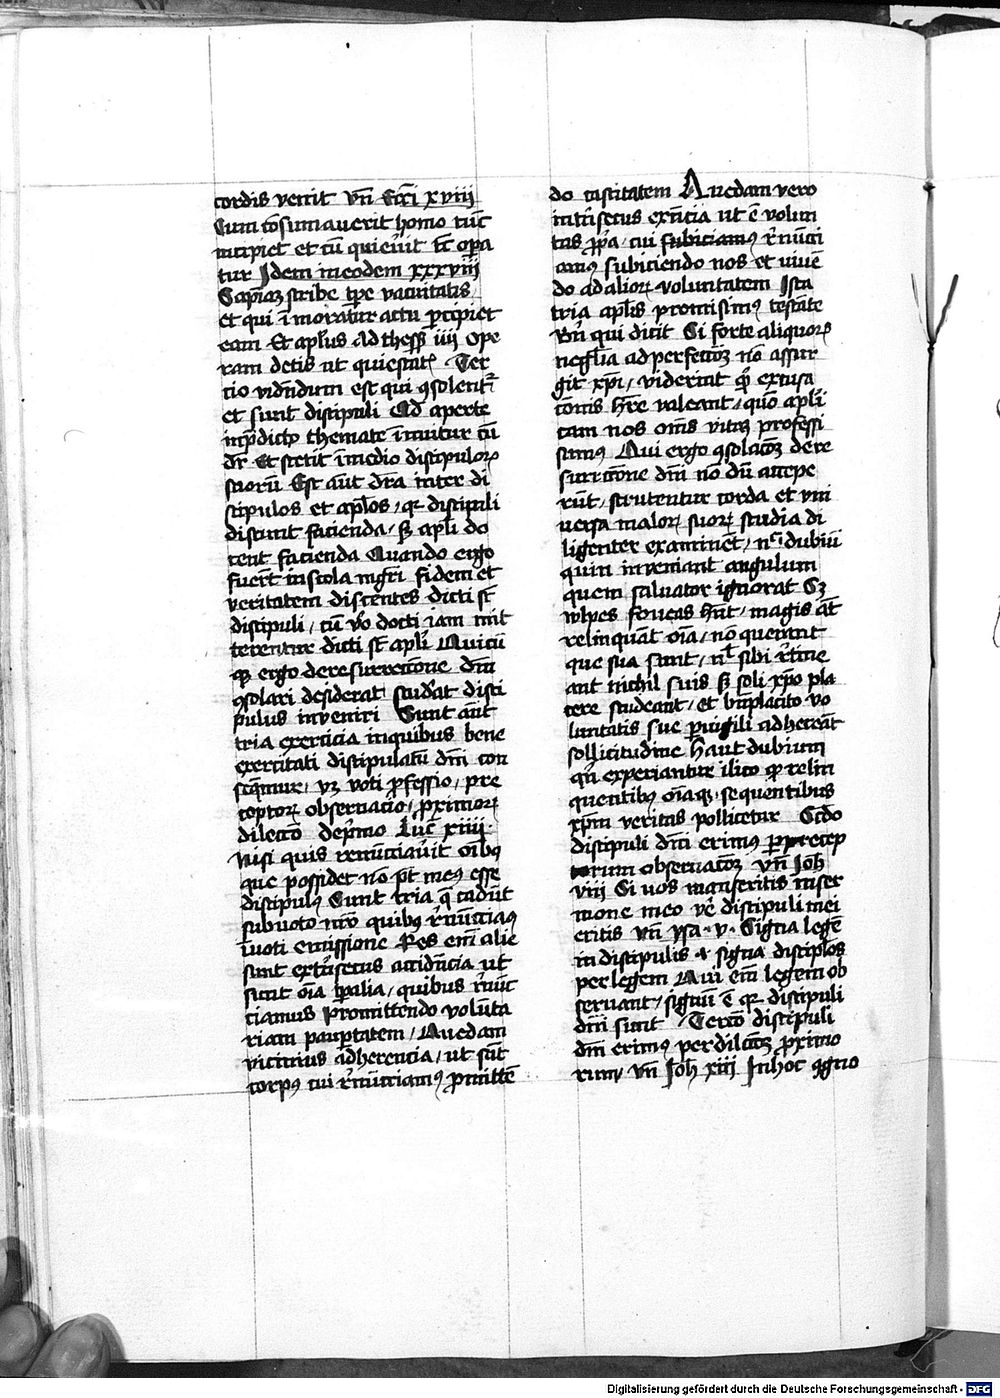 cordis venit vn̄ Ecc̄i xviii
Cum cōsumaverit homo tūc
incipiet et cū quieu̓it t̄c opa
tur Idem in eodem xxxviii
Sapiaꝫ scribe tp̄e vacuitatis
et qui īmoratur actu ꝑcipiet
eam Et apl̓us Ad thess̄ iiii Ope
ram detis ut quiestat Ter
cio vid̄ndum est qui ꝯsolent᷑
et sunt discipuli Qd̄ aperte
in p̄dicto themate īnuitur cū
dr̄ Et stetit ī medio discipuloꝝ
suorū Est aūt dr̄a inter di
scipulos et apl̓os / qꝛ discipuli
discunt facienda / sꝫ apl̓i do
cent facienda Quando ergo
fuer̄t in scola mgr̄i fidem et
veritatem discentes dicti sr̄t
discipuli / cū v̓o docti iam mit
terentur dicti sr̄t apl̓i Quicū
qꝫ ergo de resurrectione dn̄i
ꝯsolari desiderat stud̓at disci
pulus inveniri Sunt aūt
tria exercicia in quibus bene
exercitati discipulatū dn̄i con
seq̄mur / vꝫ voti ꝓfessio / pre
ceptoꝝ obseruacio / ꝓximoꝝ
dilectio de p̓mo Luc̄ xiiii
Nisi quis renūciau̓it oīb9
que possidet no pt̄ meus esse
discipul9 Sunt tria q̄ cadūt
sub voto nr̄o quib9 r̓nūciam9
ī voti emissione Res em̄ alie
sunt ext̓nsecus accid̄ncia ut
sicut oīa tp̄alia / quibus r̓nūc
ciamus ꝓmittendo volūta
riam paup̄tatem / Quedam
vicinius adherencia / ut sūt
corp9 cui r̓nūcciam9 ꝓmittē
do castitatem Quedam vero
intr̓secus ex̄ncia ut ē volun
tas ꝓp̓a / cui subiciam9 r̓nūci
am9 subiciendo nos et viuē
do ad alioꝝ voluntatem Ista
tria apl̓is promisim9 testāte
brn̄ qui dicit Si forte aliquoꝝ
negl̓ia ad perfectōꝫ nō assur
git xp̄i / viderint qꝫ excusa
tionis hr̄e valeant / quō apl̓i
cam nos om̄s vitaꝫ professi
sumus Qui ergo ꝯsolacōꝫ de re
surrectione dn̄i nō dū accepe
rūt / scrutentur corda et vni
uersa maloꝝ suoꝝ studia di
ligenter examinēt / nec̓ dubiū
quin inveniant angulum
quem saluator ignorat Sꝫ
vulpes foueas hn̄t / magis āt
relinquāt oīa / nō querant
que sua sunt / nl̓ sibi r̓tine
ant nichil suis sꝫ soli xp̄o pla
cere studeant / et bn̄placito vo
luntatis sue peruigili adhereāt
sollicitudine Haut dubium
qn̄ experiantur ilico qꝫ relin
quentibꝰ oīaqꝫ / sequentibus
xp̄m veritas pollicetur Scdo
discipuli dn̄i erimus ꝑ precep
torum obseruacōꝫ vn̄ Joh̄
viii Si uos manseritis in ser
mone meo ve̓ discipuli mei
eritis vn̄ ysa · v · Signa legē
in discipulis r̓ signa discipl̄os
per legem Qui em̄ legem ob
seruant / signū ē qꝛ discipuli
dn̄i sunt Tercō discipuli
dn̄i erim9 per dilcōꝫ ꝓximo
rum / vn̄ Joh̄ xiii In hoc ꝯgno
Digitalisierung gefördert durch die Deutsche Forschungsgemeinschaft - DFG